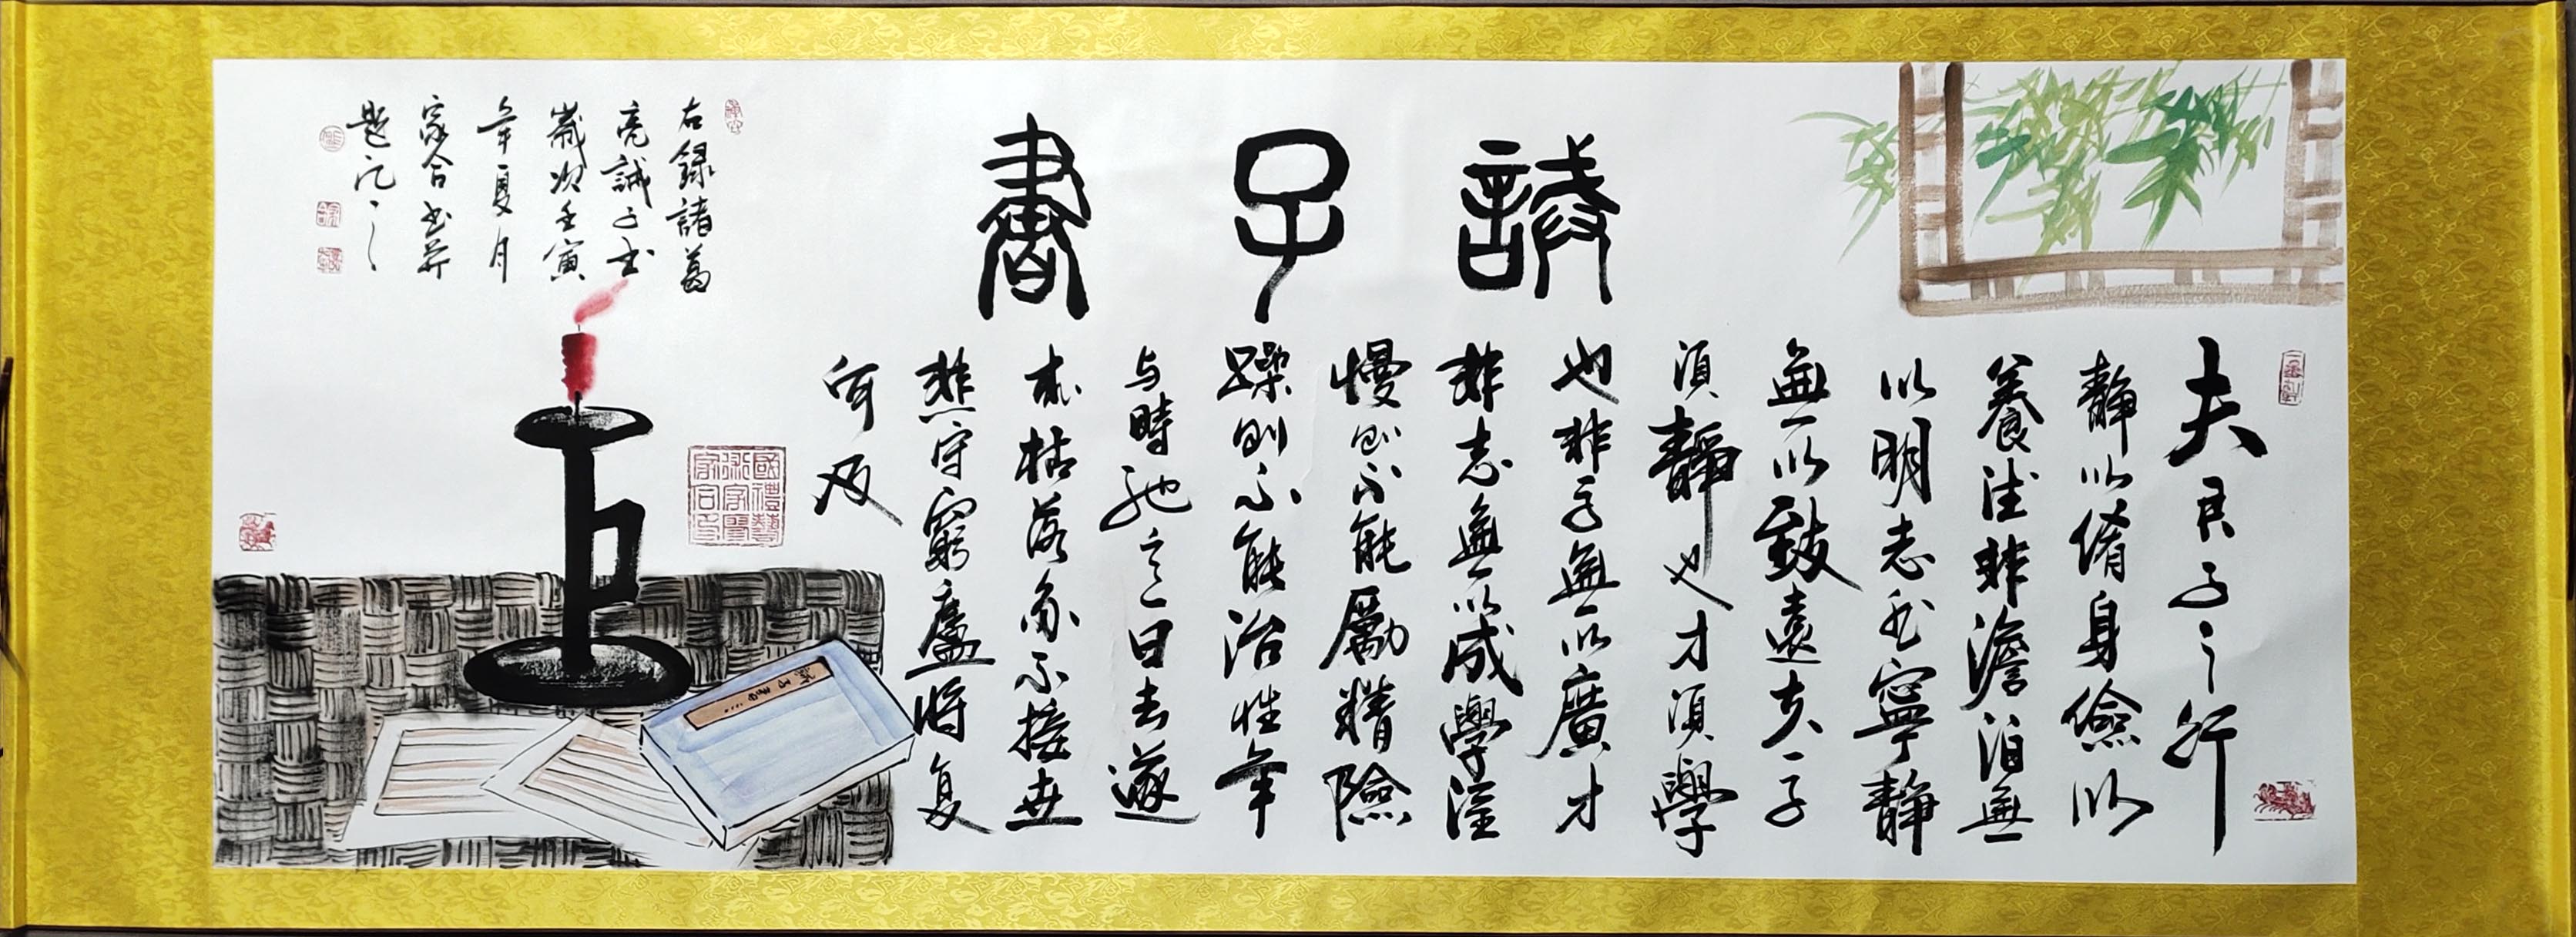 誡子書
夫君子之行
靜以脩身儉以
養德非澹泊無
以明志非寧靜
無以致遠夫学
須靜也才須學
也非学無以廣才
非志無以成學淫
慢則不能勵精險
躁則不能治性年
与時馳意日去遂
成枯落多不接世
悲守窮廬將復
何及
右録諸葛
亮誡子书
歲次壬寅
年夏月
家合书并
題记之
國禮藝
術家
家合印
誡子書